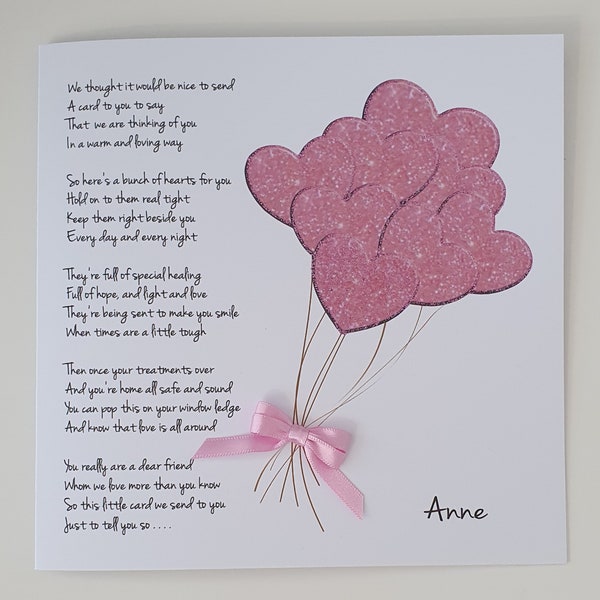 We thought it would be nice to send
A card to you to say
That we are thinking of you
In a warm and loving way
So here's a bunch of hearts for you
Hold on to them real tight
Keep them right beside you
Every day and every night
They're full of special healing
Full of hope, and light and love
They're being sent to make you smile
When times are a little tough
Then once your treatments over
And you're home all safe and sound
You can pop this on your window ledge
And know that love is all around
You really are a dear friend
Whom we love more than you know
So this little card we send to you
Just to tell you so . . . .
Anne